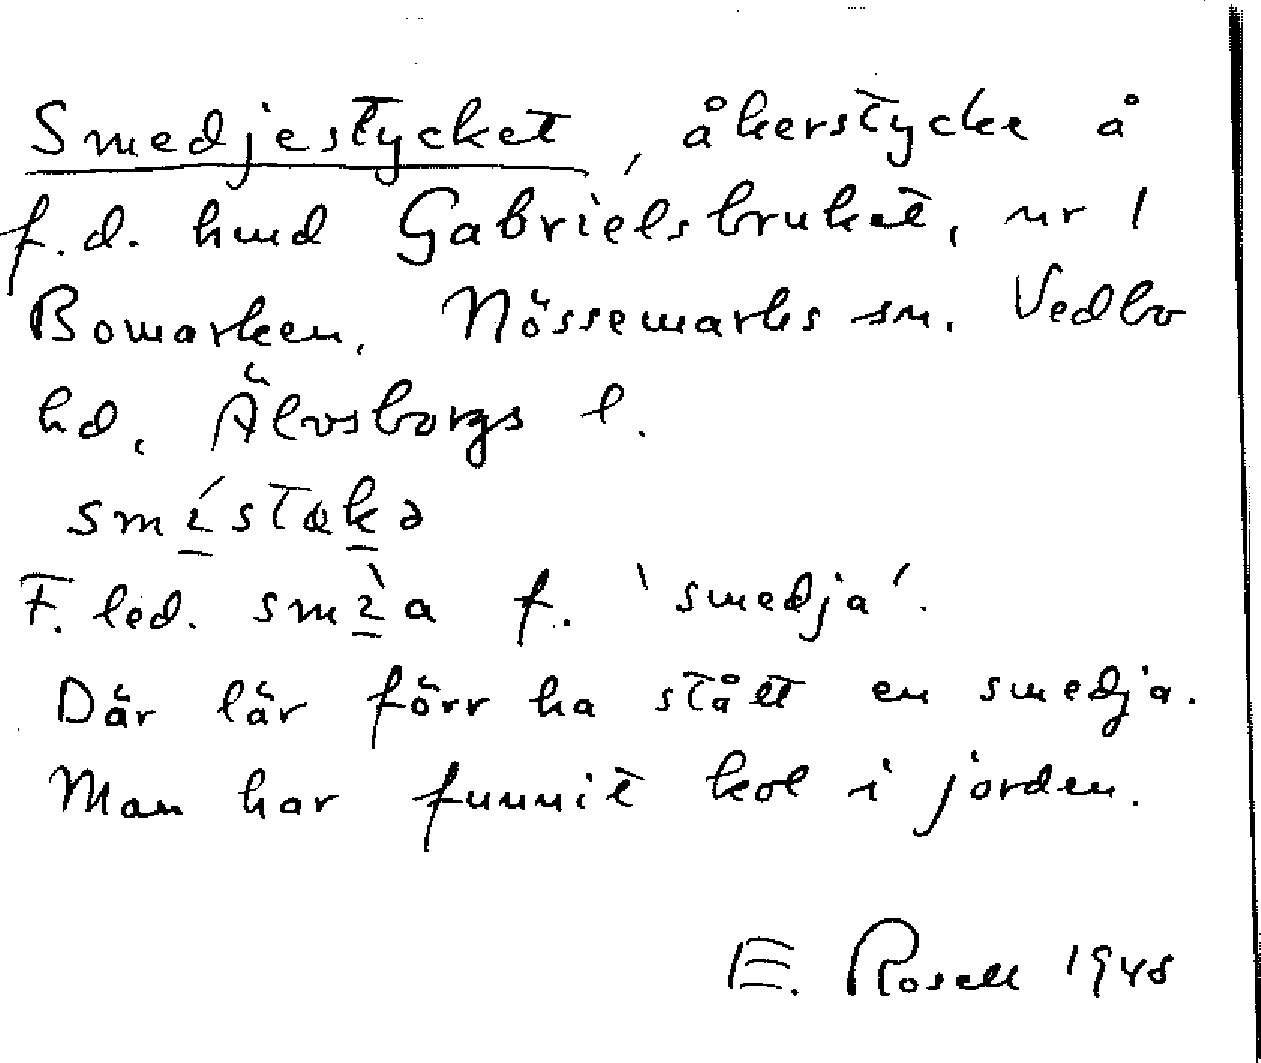 Smedjestycket, åkerstycke å
f.d. hmd Gabrielsbruket, nr 1
Bomarken, Nössemarks sn. Vedbo
hd, Älvsborgs l.
F. led. f. 'smedja'.
Där lär förr ha stått en smedja.
Man har funnit kol i jorden.
E. Rosell 1948